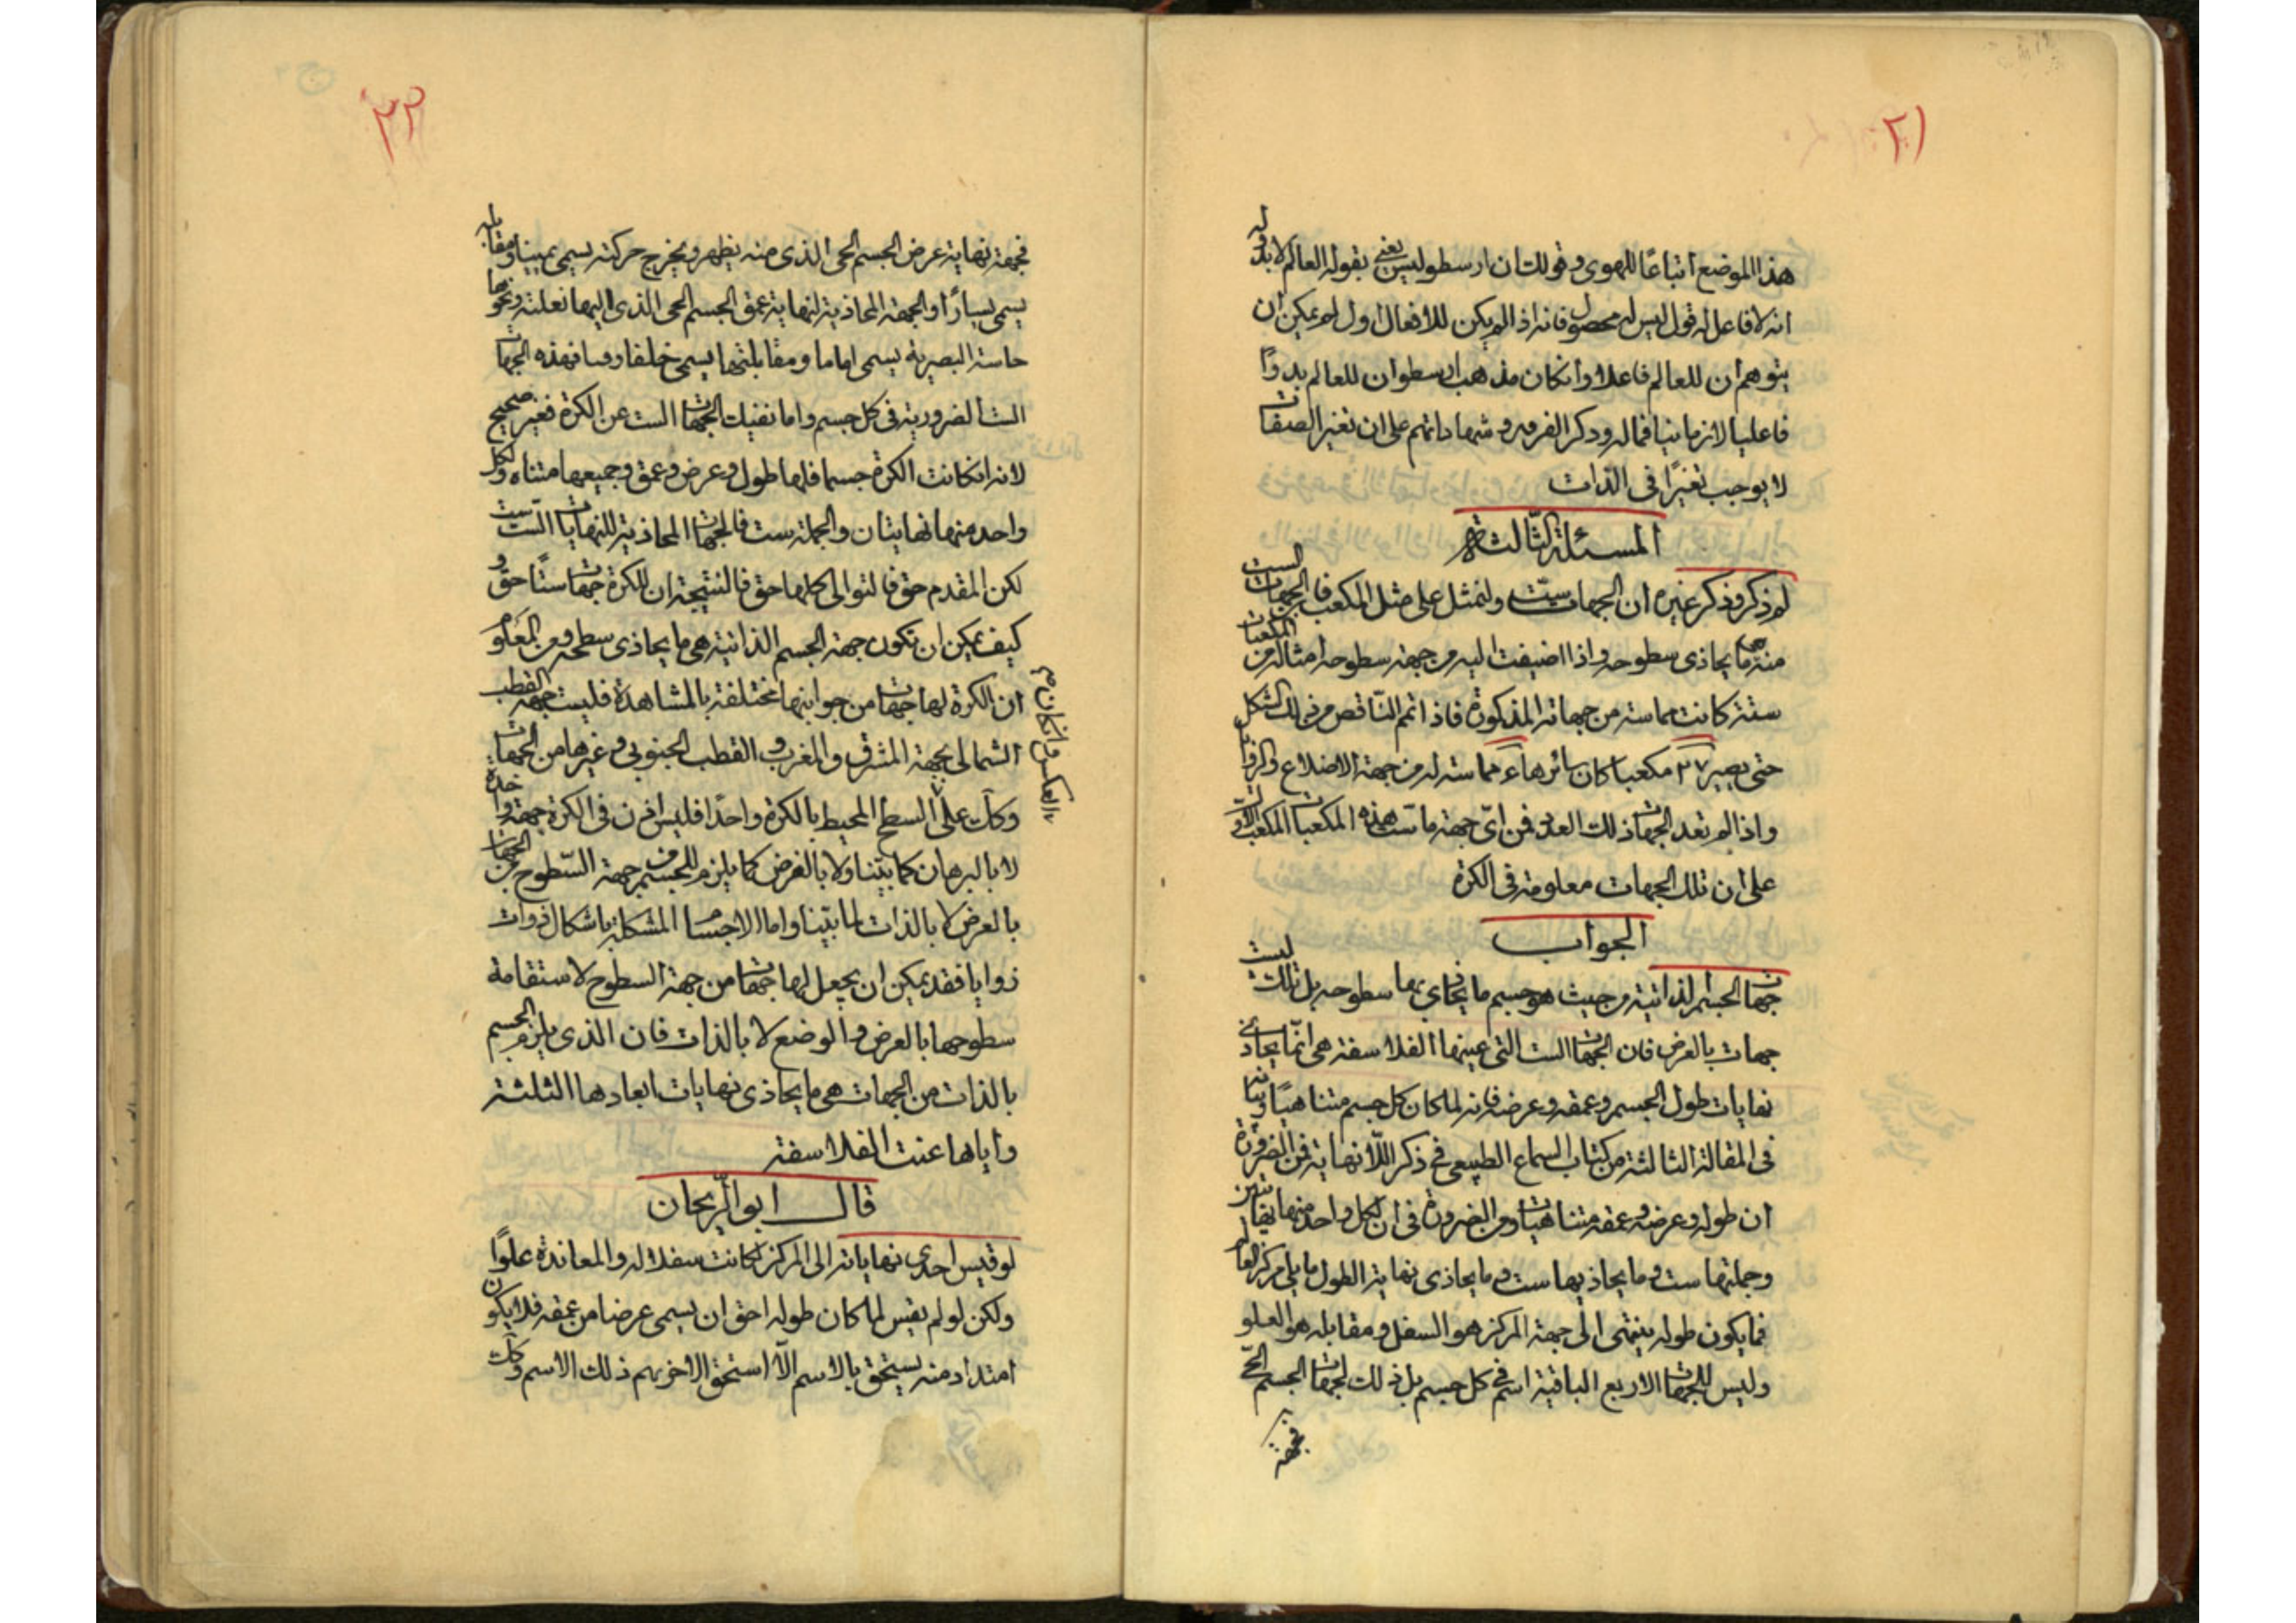 ٢١
هذا الموضع اتباعًا للهوى وقولك ان ارسطوليس يعنى بقوله العالم لا بدو له
انه لا فاعل له قول ليس له محصول فانه اذا لم يكن للافعال اول لم يمكن ان
يتوهم ان للعالم فاعلا وانكان مذهب ارسطو ان للعالم بدوًا
فاعليا لا زمانيا فماله وذكر القرون وشهاداتهم على ان تغير الصفات
لا يوجب تغيرًا فى الذات
المسئلة الثالثة
لم ذكر وذكر غيره ان الجهات ستّ ولنمثل على مثل المكعب فالجهات الست
منه هى ما يحاذى سطوحه واذا اضيفت اليه من جهة سطوحه امثاله من المكعبات
ستة كانت مماسة من جهاته المذكورة فاذا اتمم الناقص من ذلك الشكل
حتى يصير ٢٧ مكعبا كان سائرها مماسته له من جهة الاضلاع والزوايا
واذا لم تعد الجهات ذلك العدد فمن اىّ جهة ماسّت هذه المكعبات المكعب الاول
على ان تلك الجهات معلومة فى الكرة
الجواب
جهات الجسم الذاتية من حيث هو جسم ما يحاذى بها سطوحه بل تلك ليست
جهات بالعرض فان الجهات الست التى عينها الفلاسفة هى انّما يحاذى
نهايات طول الجسم وعمقه وعرضه فانه لما كان كل جسم متناهيًا وبيانه
فى المقالة الثالثة من كتاب السماع الطبيعى فى ذكر اللّانهاية فمن الضرورة
ان طوله وعرضه وعمقه متناهيات ومن الضرورة فى ان لكل واحد منها نهايتين
وجملتها ست وما يحاذيها ست وما يحاذى نهاية الطول ما يلى مركز العالم
فما يكون طوله ينتهى الى جهة المركز هو السفل ومقابله هو العلو
وليس للجهات الاربع الباقية اسم فى كل جسم بل ذلك لجهات الجسم الحىّ
فجهة
٢٢
فجهة نهاية عرض الجسم الحى الذى منه يظهر ويخرج حركته يسمى يمينا ومقابله
يسمى يسارًا والجهة المحاذية لنهاية عمق الجسم الحى الذى اليها نعليته ونحوها
حاسته البصرية يسمى اماما ومقابلتها يسمى خلفا وقفا فهذه الجهات
الست الضرورية فى كل جسم واما نفيك الجهات الست عن الكرة فغير صحيح
لانه انكانت الكرة جسما فلها طول وعرض وعمق وجميعها متناه ولكل
واحد منها نهايتان والجملة ست فالجهات المحاذية للنهايات الستّ ست
لكن المقدم حق فالتوالى كلها حق فالنتيجة ان للكرة جهات ستًا حق و
كيف يمكن ان تكون جهة الجسم الذاتية هى ما يحاذى سطحه ومن المعلوم
ان الكرة لها جهات من جوانبها مختلفة بالمشاهدة فليست جهة القطب
الشمالى بجهة المشرق والمغرب والقطب الجنوبى وغيرها من الجهات
وانكان م
بالعكس
وكك على السطح المحيط بالكرة واحدًا فليس اذن فى الكرة جهة واحدة
لا بالبرهان كما بيّنا ولا بالفرض كما يلزم للجسم من جهة السّطوح من الجهات
بالعرض لا بالذات لما بيّنا واما الاجسام المشكلة باشكال ذوات
زوايا فقد يمكن ان يجعل لها جهات من جهة السطوح لاستقامة
سطوحها بالعرض والوضع لا بالذات فان الذى يلزم الجسم
بالذات من الجهات هى ما يحاذى نهايات ابعادها الثلثة
واياها عنت الفلاسفة
قال ابو الرّيحان
لو قيس احدى نهاياته الى المركز لكانت سفلا له والمعاندة علوًا
ولكن لو لم يقس لما كان طوله احق ان يسمى عرضا من عمقه فلا يكون
امتداد منه يستحق بالاسم الّا استحق الاخر بهم ذلك الاسم وكك